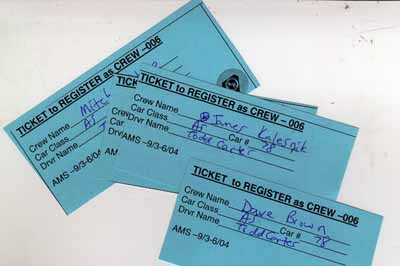 TICKET to REGISTER as CREW -006
Crew Name Mitch
Car Class A5
Drvr Name
AMS -9/3-6/04
TICKET to REGISTER as CREW -006
Crew Name James Kalesnik
Car Class A5 Car # 78
Drvr Name Todd Carter
AMS -9/3-6/04
TICKET to REGISTER as CREW -006
Crew Name Dave Brown
Car Class A5 Car # 78
Drvr Name Todd Carter
AMS -9/3-6/04